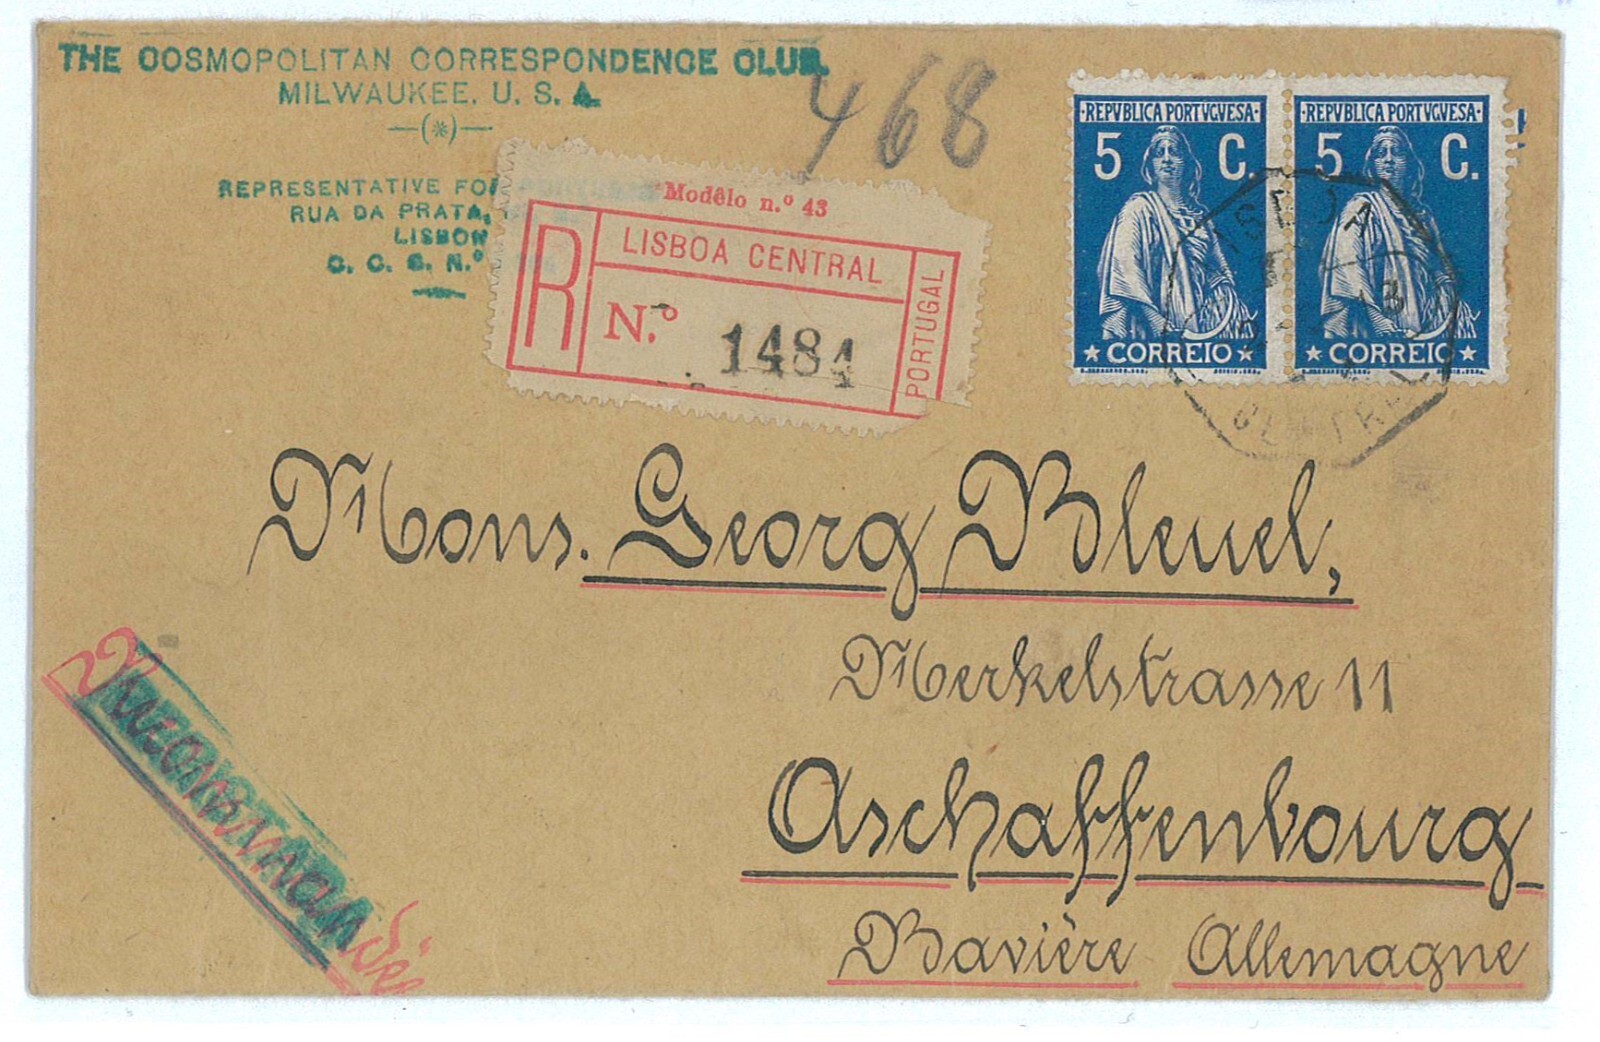 THE COSMOPOLITAN CORRESPONDENCE CLUB.
MILWAUKEE. U. S. A.
468
REPRESENTATIVE FOR
RUA DA PRATA,
LISBON
C. C. C. N.º
Modêlo n.º 43
R
LISBOA CENTRAL
N.º 1484
PORTUGAL
REPVBLICA PORTVGVESA
5 C.
CORREIO
REPVBLICA PORTVGVESA
5 C.
CORREIO
CENTRAL
Mons. Georg Bleuel,
Merkelstrasse 11
Aschaffenbourg
Bavière Allemagne